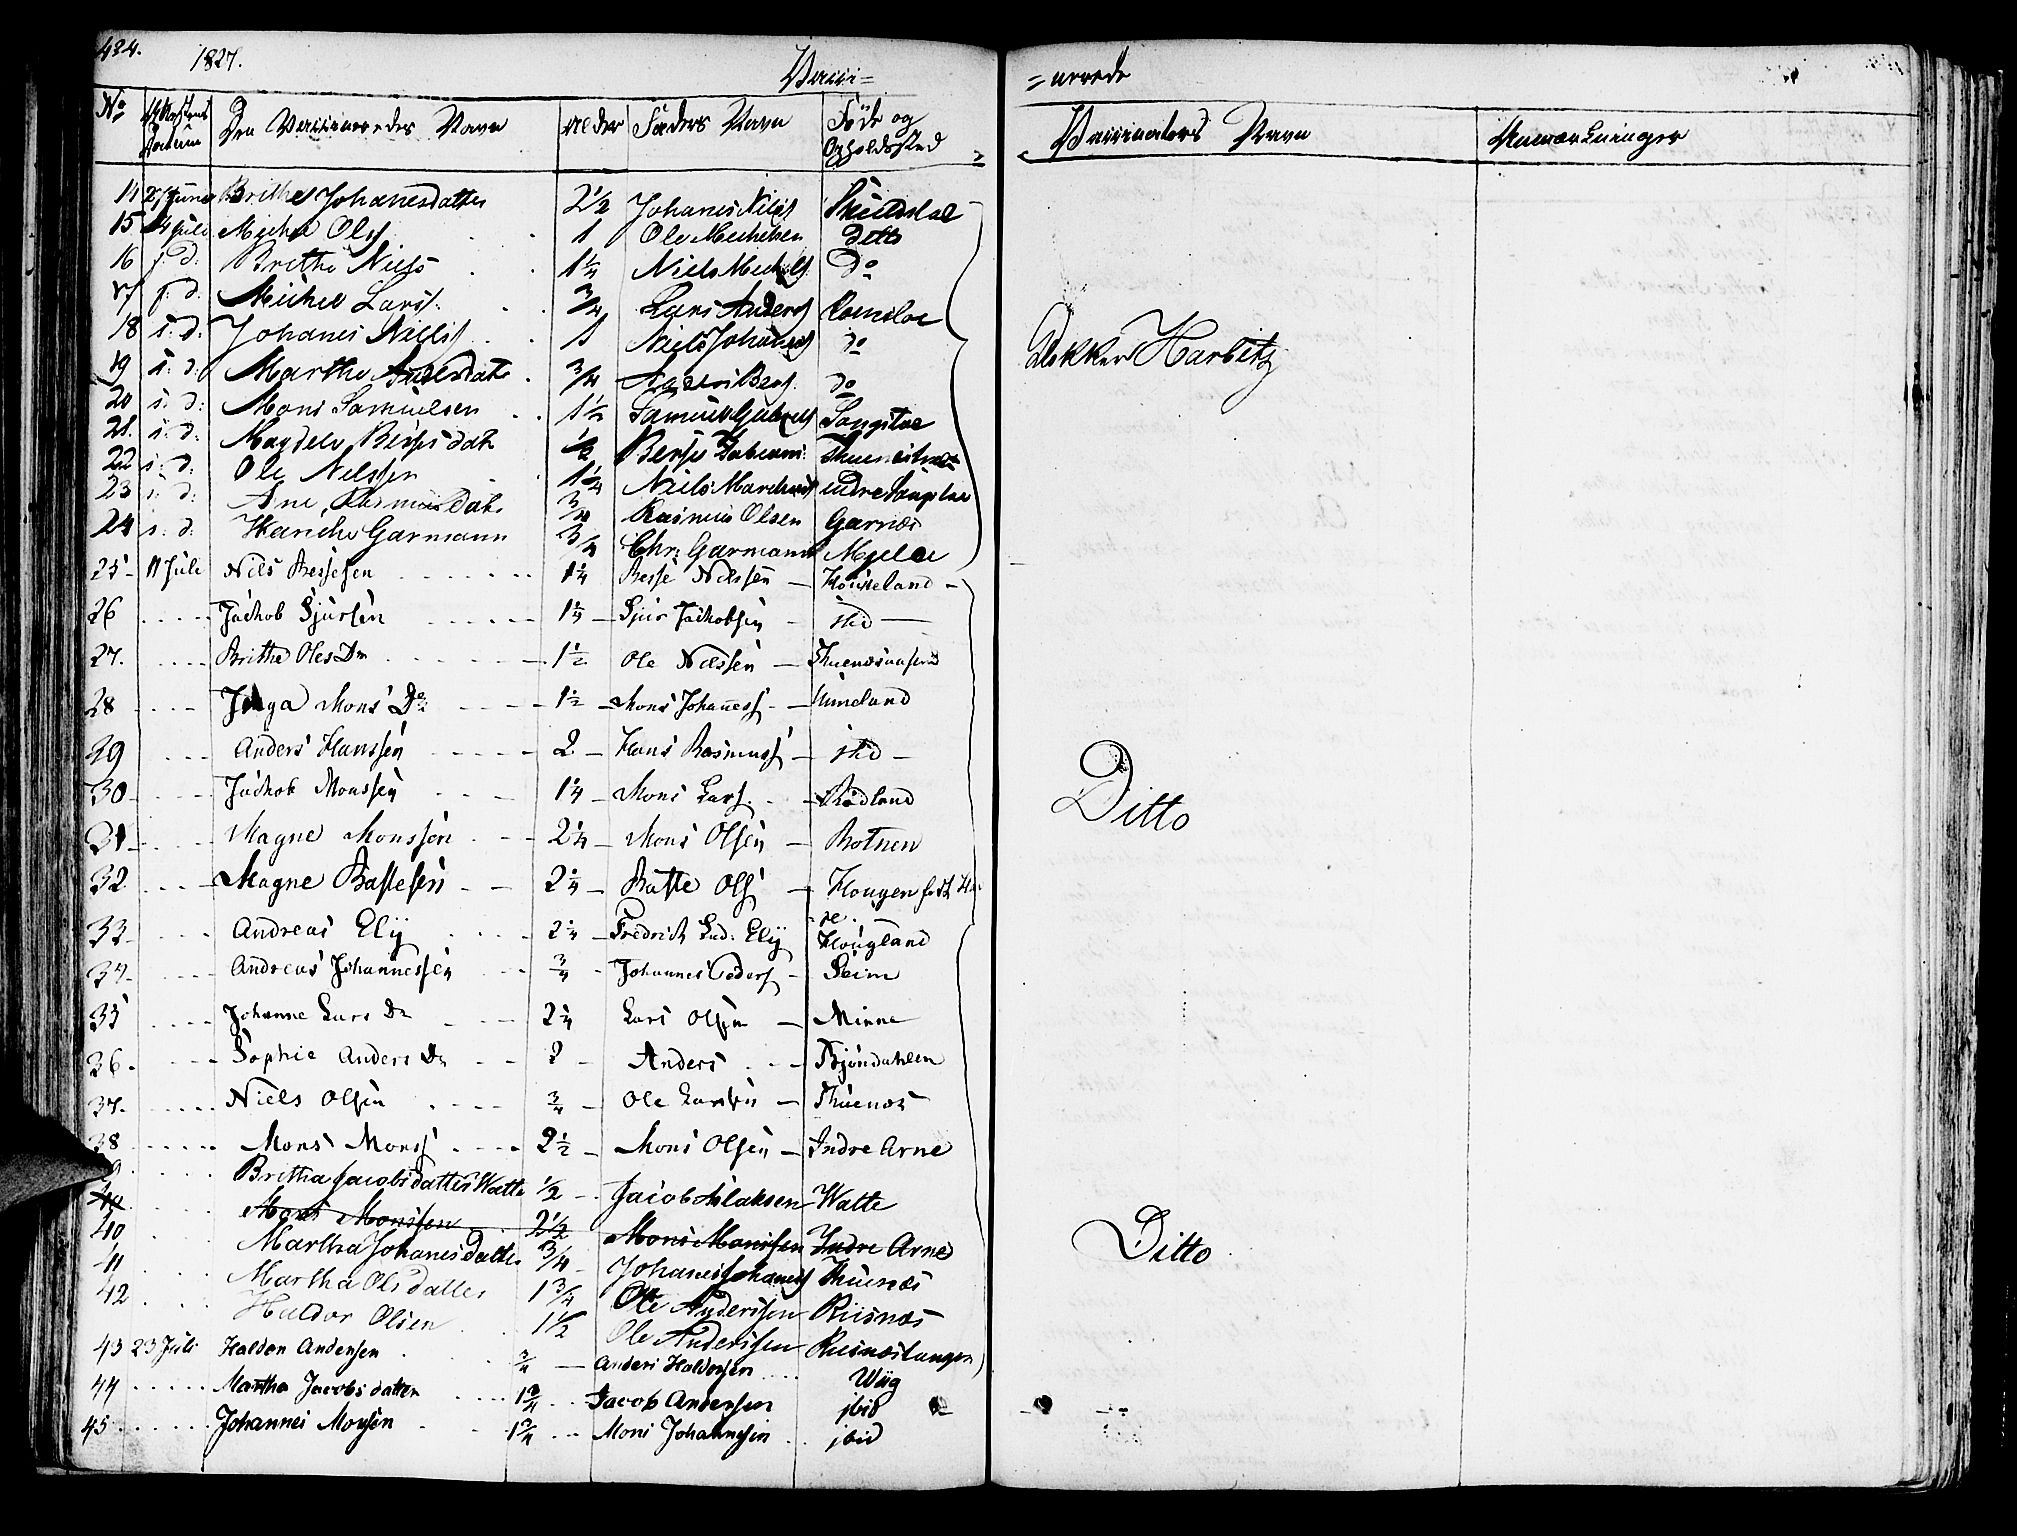 424. 1827. Vacci= =nerede
No Attestens Datum Den Vaccineredes Navn Alder Faders Navn Føde og Opholdssted Vaccinateurs Navn Anmærkninger
14 27 Juni Brithe Johanesdatter 2 1/2 Johanes Nilss
15 4 Juli Michel Olss 1 Ole Michelsen Ditto
16 s. d: Brithe Niels 1 1/4 Niels Michels do
17 s. d. Michel Larss. 3/4 Lars Anderss Romsloe
18 s. d. Johanes Nielss 1 Niels Johaness do
19 s. d. Marthe Andersdatr 3/4 Anders Berss. do
20 s. d: Mons Samuelsen 1 1/2 Samuel Gabrielss Songstoe
21. s. d. Magdele Berses datr 1/2 Berses
22 s. d. Ole Nelssen 1 1/4 Niels Indre Songstoe
23 s. d: Ane Rasmusdatr 3/4 Rasmus Olsen Garnæs
24 s. d: Hariche Garmann 3/4 Chr: Garmann Mjelde
25 11 Juli Nils Bessesen 1 1/4 Besse Nilssen Houkeland
26 Jachob Sjursen 1 1/4 Sjur Jachobsen ibid
27. Britha Oles Dr 1 1/2 Ole Nilssen
28 Inga Mons Dr 1 1/2 Mons Johaness. Unneland
29 Anders Hanssen 2 Hans Rasmuss ibid
30 Jachob Monssen 1 1/4 Mons Larss. Rødland
31 Magne Monssen 2 1/4 Mons Olsen Botnen
32 Magne Bastesen 2 1/4 Baste Olss Hougen
33 Andreas Elÿ 2 1/4 Fredrich Lud: Elÿ Hougland
34 Andreas Johannessen 3/4 Johannes Peders Seim
35 Johanne Lars Dr 2 1/4 Lars Olsen Minne
36. Sophie Anders Dr 2 Anders Bjöndahlen
37. Niels Olsen 3/4 Ole Larsen Thuenæs
38 Mons Monss 2 1/2 Mons Olsen Indre Arne
39 Britha Jacobsdatter Watle 1/2 Jacob Aslaksen Watle
40 Mons Monssen 2 1/2 Mons Monssen Indre Arne
40 Martha Johanes Datter 3/4 Johanes Johaness Thuenæs
41 Martha Olsdatter 1 3/4 Ole Anderssen Risnæs
42 Haldor Olsen 1 1/2 Ole Anderssen Risnæstangen
43 23 Juli Haldon Andersen 3/4 Anders Haldorsen Wiig
44 Martha Jacobsdatter 1 3/4 Jacob Andersen ibid
45. Johannes Monsen 1 3/4 Mons Johannesen ibid
Dokker Harbitz
Ditto
Ditto